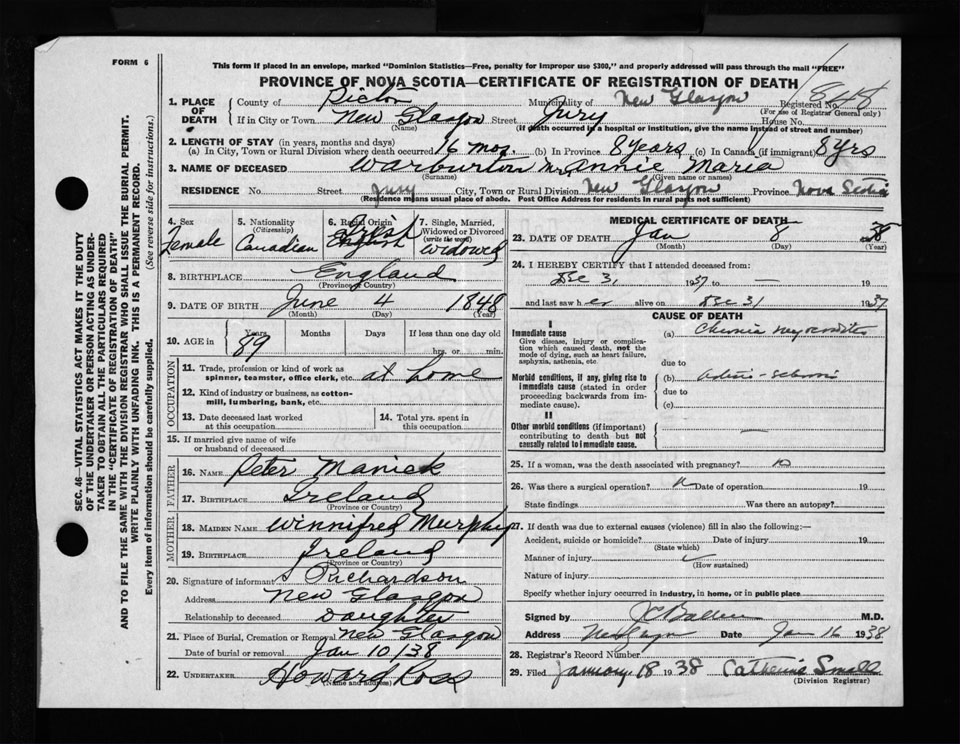 FORM 6
This form if placed in an envelope, marked "Dominion Statistics—Free, penalty for improper use $300," and properly addressed will pass through the mail "FREE"
PROVINCE OF NOVA SCOTIA—CERTIFICATE OF REGISTRATION OF DEATH
1. PLACE OF DEATH { County of Pictou Municipality of New Glasgow Registered No.
(For use of Registrar General only)
If in City or Town New Glasgow Street Jury House No.
(Name) (If death occurred in a hospital or institution, give the name instead of street and number)
2. LENGTH OF STAY (in years, months and days)
(a) In City, Town or Rural Division where death occurred 16 mos. (b) In Province 8 years (c) In Canada (if immigrant) 8 yrs
3. NAME OF DECEASED Warburton Mrs Annie Maria
(Surname) (Given name or names)
RESIDENCE No. Street Jury City, Town or Rural Division New Glasgow Province Nova Scotia
(Residence means usual place of abode. Post Office Address for residents in rural parts not sufficient)
4. Sex Female
5. Nationality (Citizenship) Canadian
6. Racial Origin Irish English
7. Single, Married, Widowed or Divorced (write the word) Widowed
8. BIRTHPLACE England
(Province or Country)
9. DATE OF BIRTH June 4 1848
(Month) (Day) (Year)
10. AGE in Years Months Days If less than one day old
89 hrs. or min.
OCCUPATION
11. Trade, profession or kind of work as spinner, teamster, office clerk, etc. at home
12. Kind of industry or business, as cotton-mill, lumbering, bank, etc.
13. Date deceased last worked at this occupation
14. Total yrs. spent in this occupation
15. If married give name of wife or husband of deceased
FATHER
16. NAME Peter Manick
17. BIRTHPLACE Ireland
(Province or Country)
MOTHER
18. MAIDEN NAME Winnifred Murphy
19. BIRTHPLACE Ireland
(Province or Country)
20. Signature of informant Richardson
Address New Glasgow
Relationship to deceased Daughter
21. Place of Burial, Cremation or Removal New Glasgow
Date of burial or removal Jan 10/38
22. UNDERTAKER Howard Ross
(Name and address)
MEDICAL CERTIFICATE OF DEATH
23. DATE OF DEATH Jan 8 38
(Month) (Day) (Year)
24. I HEREBY CERTIFY that I attended deceased from:
Dec 31 1937 to — 19
and last saw her alive on Dec 31 1937
CAUSE OF DEATH
I
Immediate cause
Give disease, injury or complication which caused death, not the mode of dying, such as heart failure, asphyxia, asthenia, etc.
(a) Chronic myocarditis
due to
Morbid conditions, if any, giving rise to immediate cause (stated in order proceeding backwards from immediate cause).
(b)
due to
(c)
II
Other morbid conditions (if important) contributing to death but not causally related to immediate cause.
25. If a woman, was the death associated with pregnancy? no
26. Was there a surgical operation? Date of operation 19
State findings Was there an autopsy?
27. If death was due to external causes (violence) fill in also the following:—
Accident, suicide or homicide? Date of injury 19
(State which)
Manner of injury
(How sustained)
Nature of injury
Specify whether injury occurred in industry, in home, or in public place
Signed by M.D.
Address Date Jan 16 1938
28. Registrar's Record Number
29. Filed January 18 1938 Catherine Small
(Division Registrar)
SEC. 46—VITAL STATISTICS ACT MAKES IT THE DUTY
OF THE UNDERTAKER OR PERSON ACTING AS UNDERTAKER TO OBTAIN ALL THE PARTICULARS REQUIRED
IN THE "CERTIFICATE OF REGISTRATION OF DEATH"
AND TO FILE THE SAME WITH THE DIVISION REGISTRAR WHO SHALL ISSUE THE BURIAL PERMIT.
WRITE PLAINLY WITH UNFADING INK. THIS IS A PERMANENT RECORD.
Every item of information should be carefully supplied. (See reverse side for instructions.)